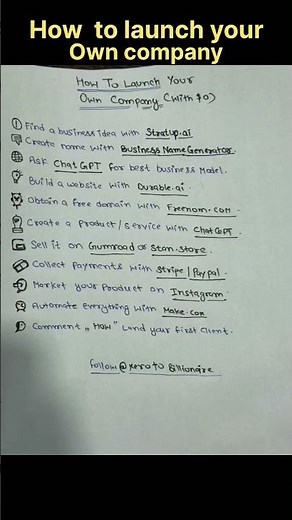 How to launch your
Own company
How To Launch Your
Own Company (With $0)
Find a business idea with Stratup.ai
Create name with Business Name Generator.
Ask Chat GPT for best business Model.
Build a website with Durable.ai
Obtain a free domain with Freenom.com
Create a product/service with Chat GPT.
Sell it on Gumroad or Stan.store
Collect Payments with stripe/Paypal.
Market your Product on Instagram
Automate Everything with Make.com
Comment „How" Land your first client.
follow@xeroto Billionaire